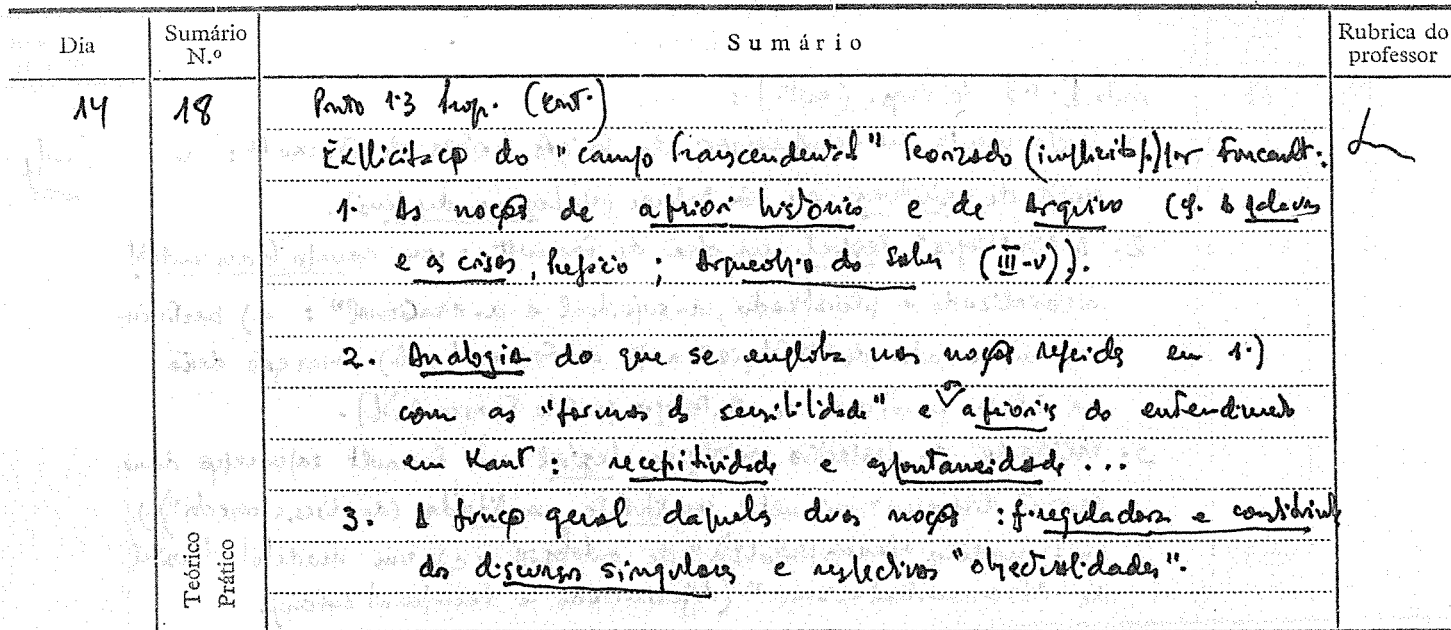 Dia Sumário N.º Sumário Rubrica do professor
14 18 Ponto 1.3 Prop. (cont.)
Explicitação do "campo transcendental" teorizado (implicita/.) por Foucault:
1. As noções de apriori histórico e de Arquivo (cf. As palavras
e as coisas, Prefácio; Arqueologia do Saber (III-V)).
2. Analogia do que se engloba nas noções referidas em 1.)
com as "formas da sensibilidade" e os aprioris do entendimento
em Kant: receptividade e espontaneidade...
3. A função geral daquelas duas noções: f. reguladora e constitutiva
dos discursos singulares e respectivas "objectualidades".
Teórico
Prático